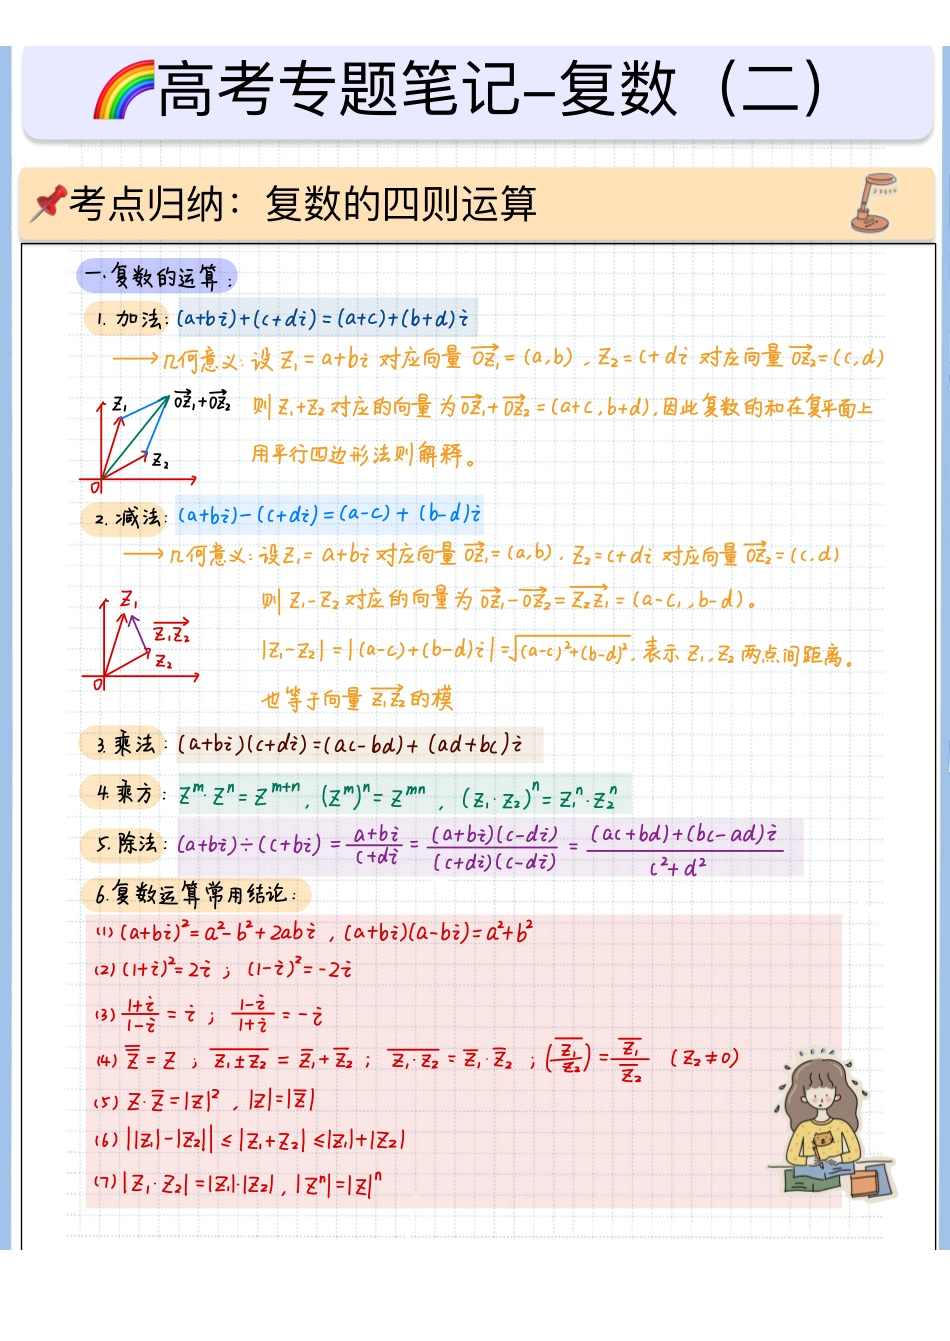 🌈高考专题笔记–复数（二）
📌考点归纳：复数的四则运算
一.复数的运算：
1. 加法：(a+bi)+(c+di)=(a+c)+(b+d)i
→几何意义：设 Z₁=a+bi 对应向量 \overrightarrow{OZ₁}=(a,b)，Z₂=c+di 对应向量 \overrightarrow{OZ₂}=(c,d)
则 Z₁+Z₂ 对应的向量为 \overrightarrow{OZ₁}+\overrightarrow{OZ₂}=(a+c,b+d),因此复数的和在复平面上
用平行四边形法则解释。
Z₁
\overrightarrow{OZ₁}+\overrightarrow{OZ₂}
Z₂
O
2. 减法：(a+bi)-(c+di)=(a-c)+(b-d)i
→几何意义：设Z₁=a+bi 对应向量 \overrightarrow{OZ₁}=(a,b)．Z₂=c+di 对应向量 \overrightarrow{OZ₂}=(c,d)
则 Z₁-Z₂ 对应的向量为 \overrightarrow{OZ₁}-\overrightarrow{OZ₂}=\overrightarrow{Z₂Z₁}=(a-c,b-d)。
|Z₁-Z₂|=|(a-c)+(b-d)i|=\sqrt{(a-c)²+(b-d)²}，表示 Z₁,Z₂ 两点间距离。
也等于向量 \overrightarrow{Z₁Z₂} 的模
Z₁
\overrightarrow{Z₁Z₂}
Z₂
O
3. 乘法：(a+bi)(c+di)=(ac-bd)+(ad+bc)i
4. 乘方：Z^m·Z^n=Z^{m+n}，(Z^m)^n=Z^{mn}，(Z₁·Z₂)^n=Z₁^n·Z₂^n
5. 除法：(a+bi)÷(c+bi)=\frac{a+bi}{c+di}=\frac{(a+bi)(c-di)}{(c+di)(c-di)}=\frac{(ac+bd)+(bc-ad)i}{c²+d²}
6.复数运算常用结论：
(1) (a+bi)²=a²-b²+2abi，(a+bi)(a-bi)=a²+b²
(2) (1+i)²=2i；(1-i)²=-2i
(3) \frac{1+i}{1-i}=i；\frac{1-i}{1+i}=-i
(4) \overline{\overline{Z}}=Z；\overline{Z₁±Z₂}=\overline{Z}₁+\overline{Z}₂；\overline{Z₁·Z₂}=\overline{Z}₁·\overline{Z}₂；\overline{(\frac{Z₁}{Z₂})}=\frac{\overline{Z₁}}{\overline{Z₂}} (Z₂≠0)
(5) Z·\overline{Z}=|Z|²，|Z|=|\overline{Z}|
(6) ||Z₁|-|Z₂||≤|Z₁+Z₂|≤|Z₁|+|Z₂|
(7) |Z₁·Z₂|=|Z₁|·|Z₂|，|Z^n|=|Z|^n